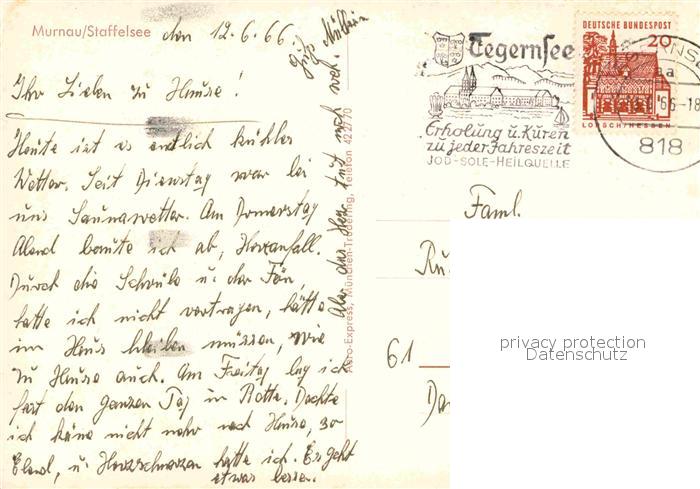 Murnau/Staffelsee
den 12.6.66
Ihr Lieben zu Hause!
Heute ist es endlich kühles
Wetter. Seit Dienstag war bei
uns Saunawetter. Am Donnerstag
Abend baute ich ab, Herzanfall.
Durch die Schwüle u. der Fön,
hatte ich nicht vertragen, hätte
im Haus bleiben müssen, wie
zu Hause auch. Am Freitag lag ich
fast den ganzen Tag im Bette. Dachte
ich käme nicht mehr nach Hause, so
Elend, u. Herzschmerzen hatte ich. Es geht
etwas besser.
Aber das Herz tut noch weh.
Aero-Express, München-Trudering, Telefon
Tegernsee
Erholung u. Kuren
zu jeder Jahreszeit
JOD-SOLE-HEILQUELLE
DEUTSCHE BUNDESPOST
20
LORSCH/HESSEN
66-18
aa
818
Faml.
61
privacy protection
Datenschutz